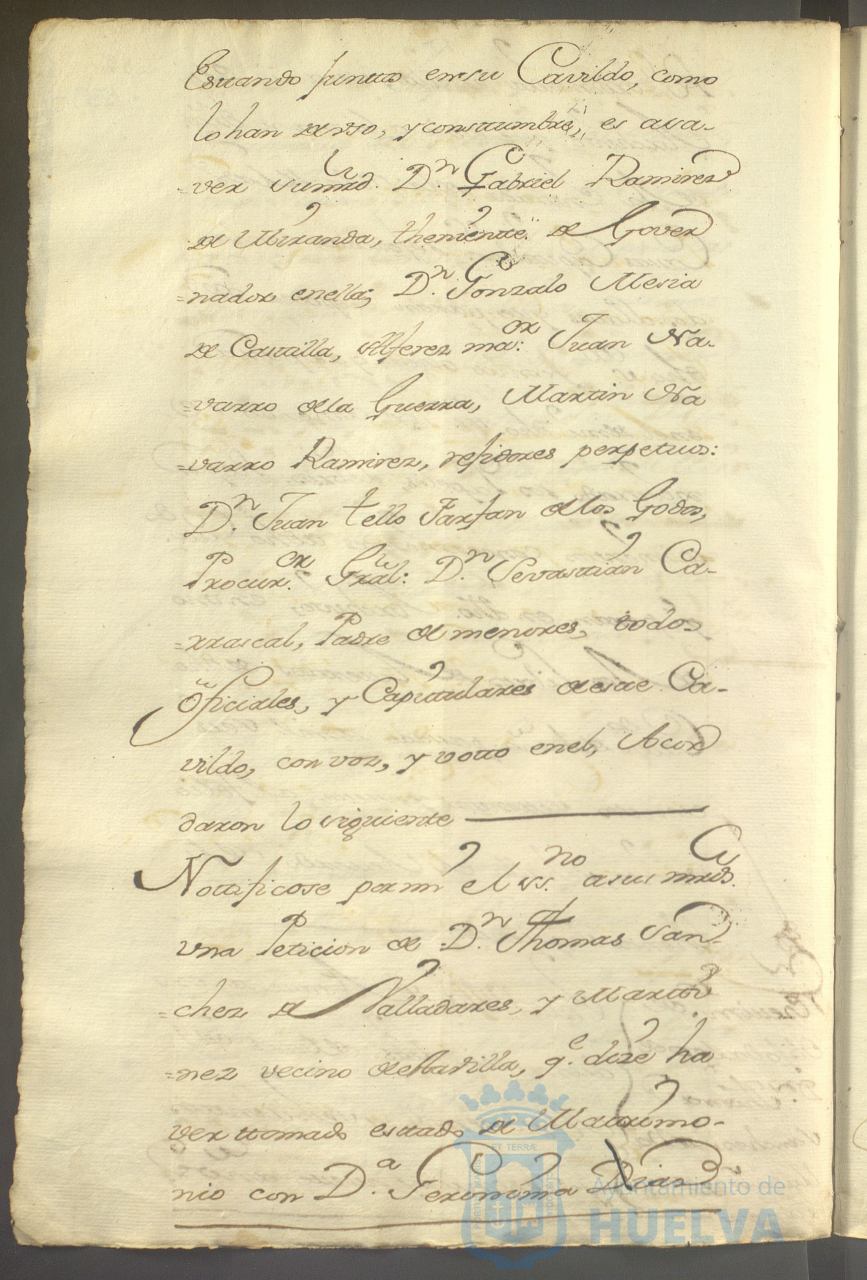 Estando juntos en su Cavildo, como
lo han de uso, y constumbre, es a sa-
-ver su mrd. Dn. Gabriel Ramirez
de Miranda, theniente de Gover
-nador en ella, Dn. Gonzalo Mesia
de Castilla, Alferez maor. Juan Na-
-varro de la Guerra, Martin Na
-varro Ramirez, rejidores perpetuos:
Dn. Juan tello Farfan de los Godos,
Procuror. Gral: Dn. Sevastian Ca-
-rrascal, Padre de menores, todos
Oficiales, y Capitulares de este Ca-
vildo, con voz, y votto en el, Acor
daron lo siguiente
Nottificose por mi el ssno. a sus mrds.
una Peticion de Dn. Thomas San
-chez de Valladares, y Martin
-nez vecino de esta villa, qe. dize ha
ver ttomado estado de Matrimo-
nio con Da. Geronima
Ayuntamiento de
HUELVA